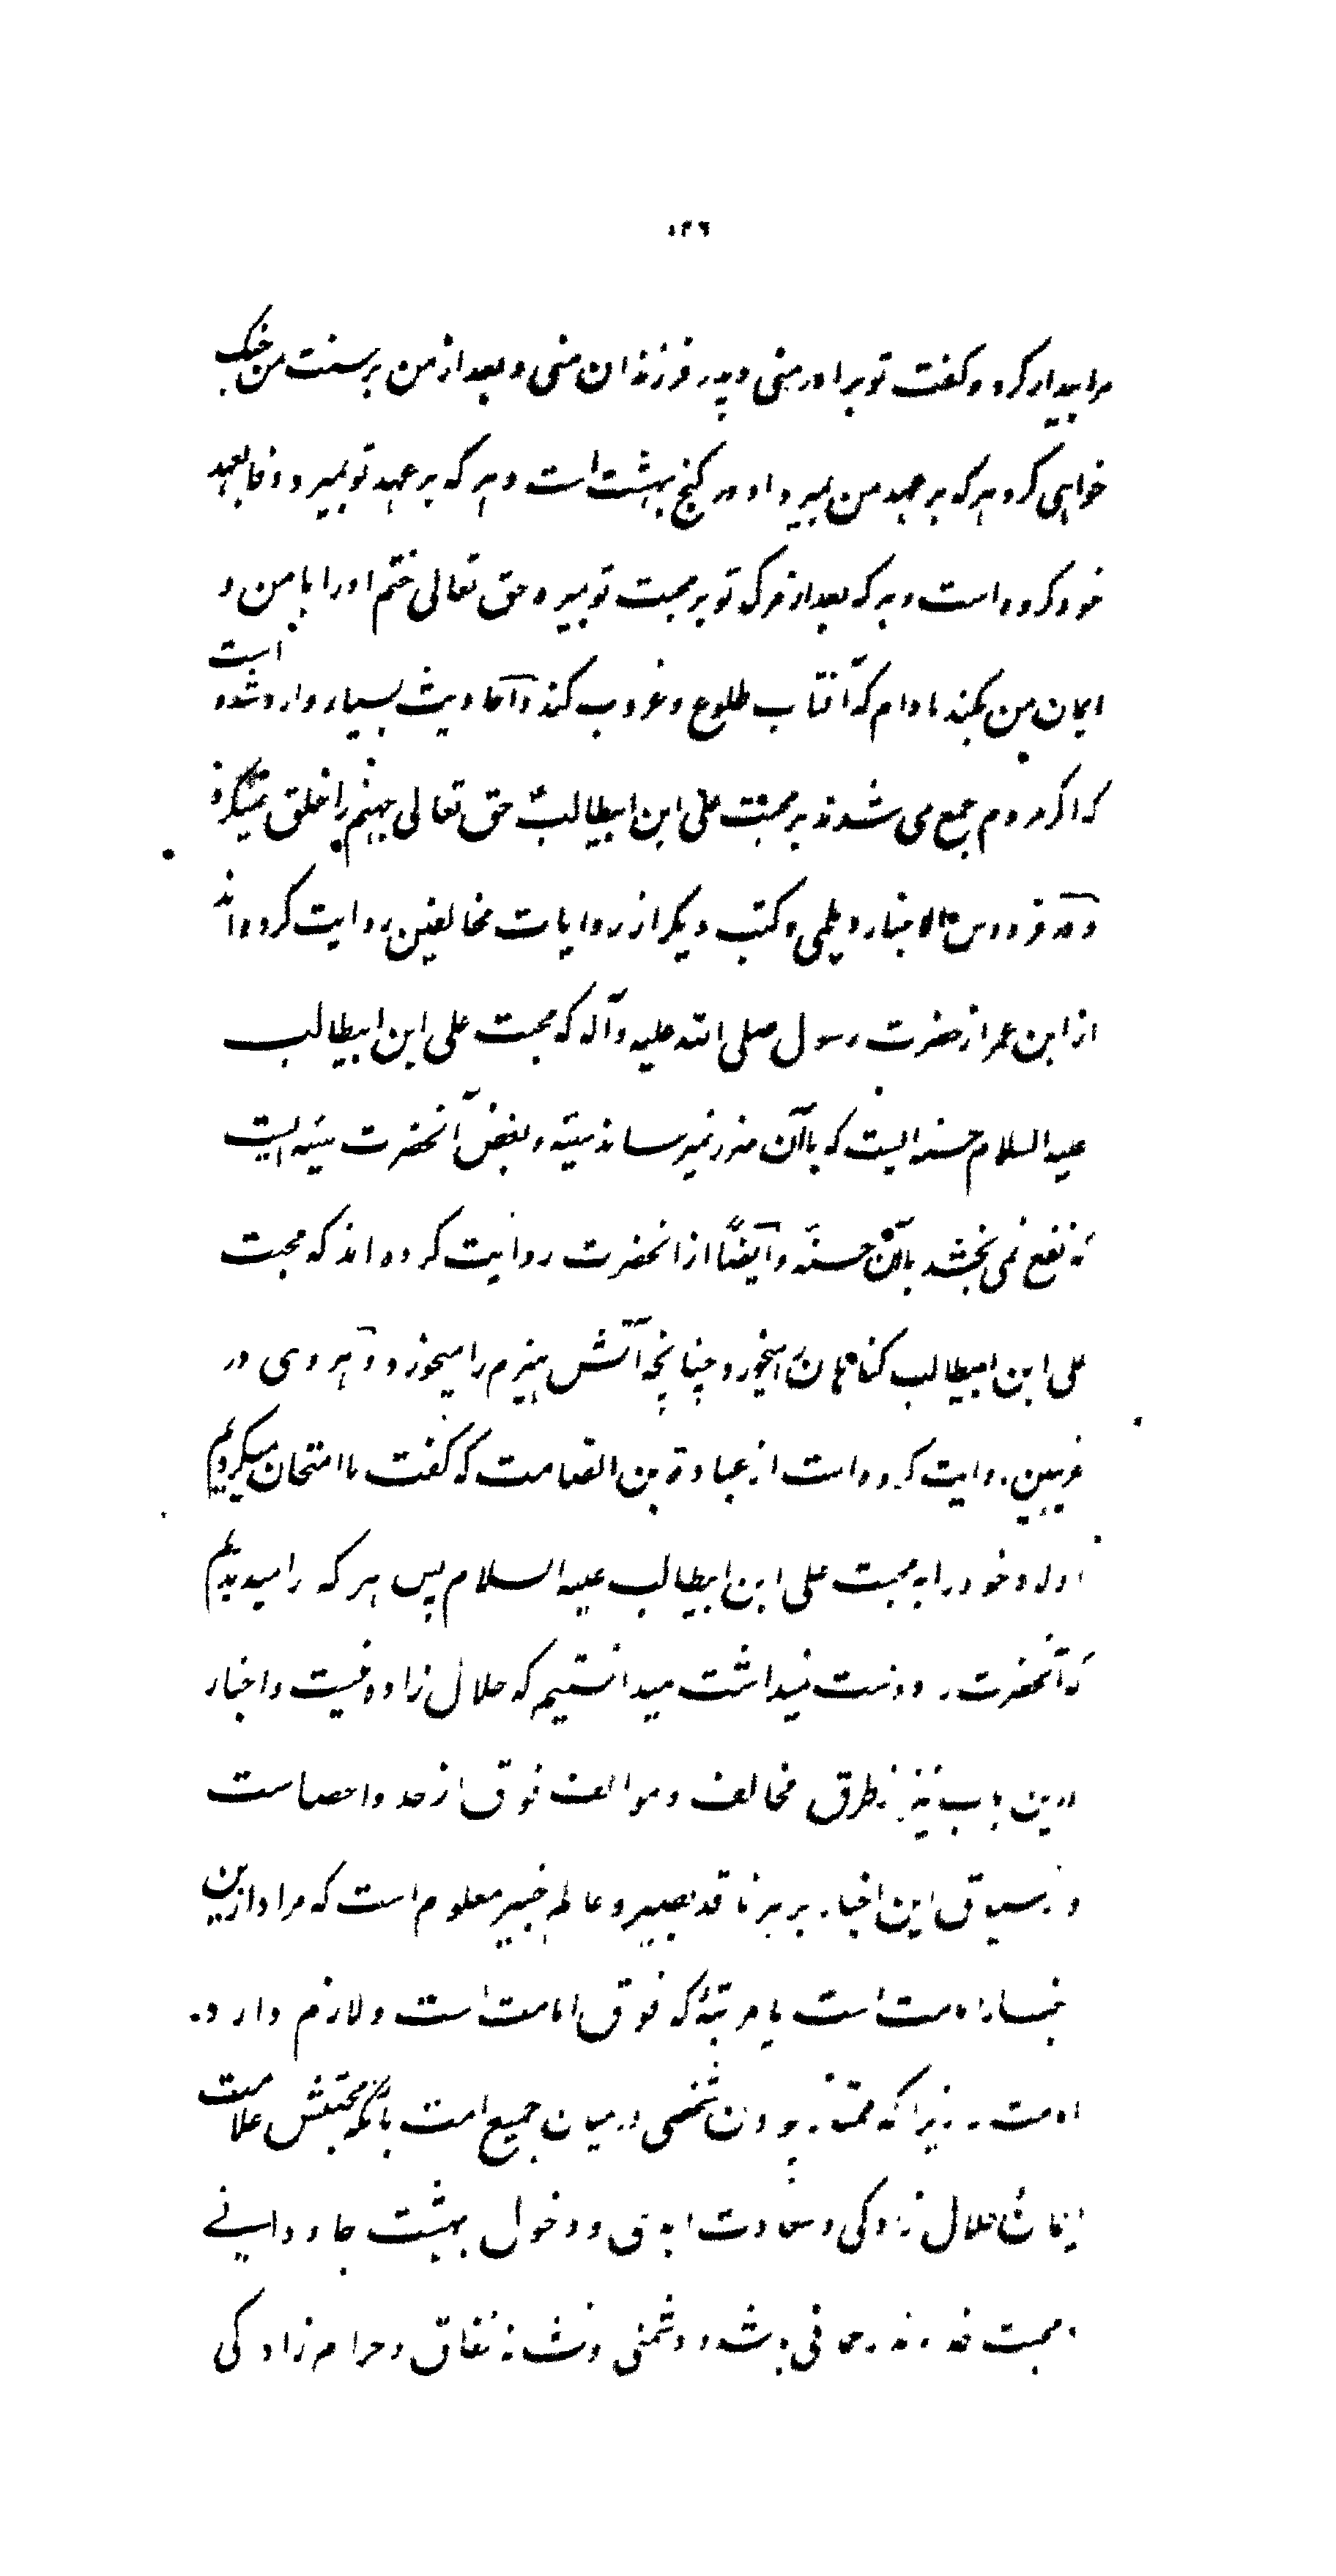 ۱۲۶
مرا بیدار کرد و کفت تو برادر منی و پدر فرزندان منی و بعد از من بر سنت من جنک
خواهی کرد هر که بر عهد من بمیرد او در کنج بهشت است و هر که بر عهد تو بمیرد وفا بعهد
خود کرده است و هر که بعد از مرک تو بر محبت تو بمیرد حق تعالی ختم او را با من و
ایمان من بکند مادام که آفتاب طلوع و غروب کند و احادیث بسیار وارد شده است
که اکر مردم جمع می شدند بر محبت علی ابن ابیطالب حق تعالی جهنم را خلق نمیکرد
و در فردوس الاخبار دیلمی و کتب دیکر از روایات مخالفین روایت کرده اند
از ابن عمر از حضرت رسول صلی الله علیه و آله که محبت علی ابن ابیطالب
علیه السلام حسنه ایست که باآن ضرر نمیرساند سیئه و بغض آنحضرت سیئه ایست
که نفع نمی بخشد باآن حسنه و ایضاً از آنحضرت روایت کرده اند که محبت
علی ابن ابیطالب کناهان را میخورد چنانچه آتش هیزم را میخورد و هروی در
غریبین روایت کرده است از عبادة بن الصامت که کفت ما امتحان میکردیم
اولاد خود را به محبت علی ابن ابیطالب علیه السلام پس هر که را میدیدیم
که آنحضرت را دوست نمیداشت میدانستیم که حلال زاده نیست و اخبار
درین باب نیز از طرق مخالف و موالف فوق از حد و احصاست
و از سیاق این اخبار بر هر ناقد بصیر و عالم خبیر معلوم است که مراد ازین
امامت است یا مرتبۀ که فوق امامت است و لازم دارد
امامت را زیرا که ممتاز بودن شخصی در میان جمیع امت بآنکه محبتش علامت
ایمان و حلال زادکی و سعادت ابدی و دخول بهشت جاودانی
و محبت خدا و ند باشد و دشمنی نشانه نفاق و حرام زادکی